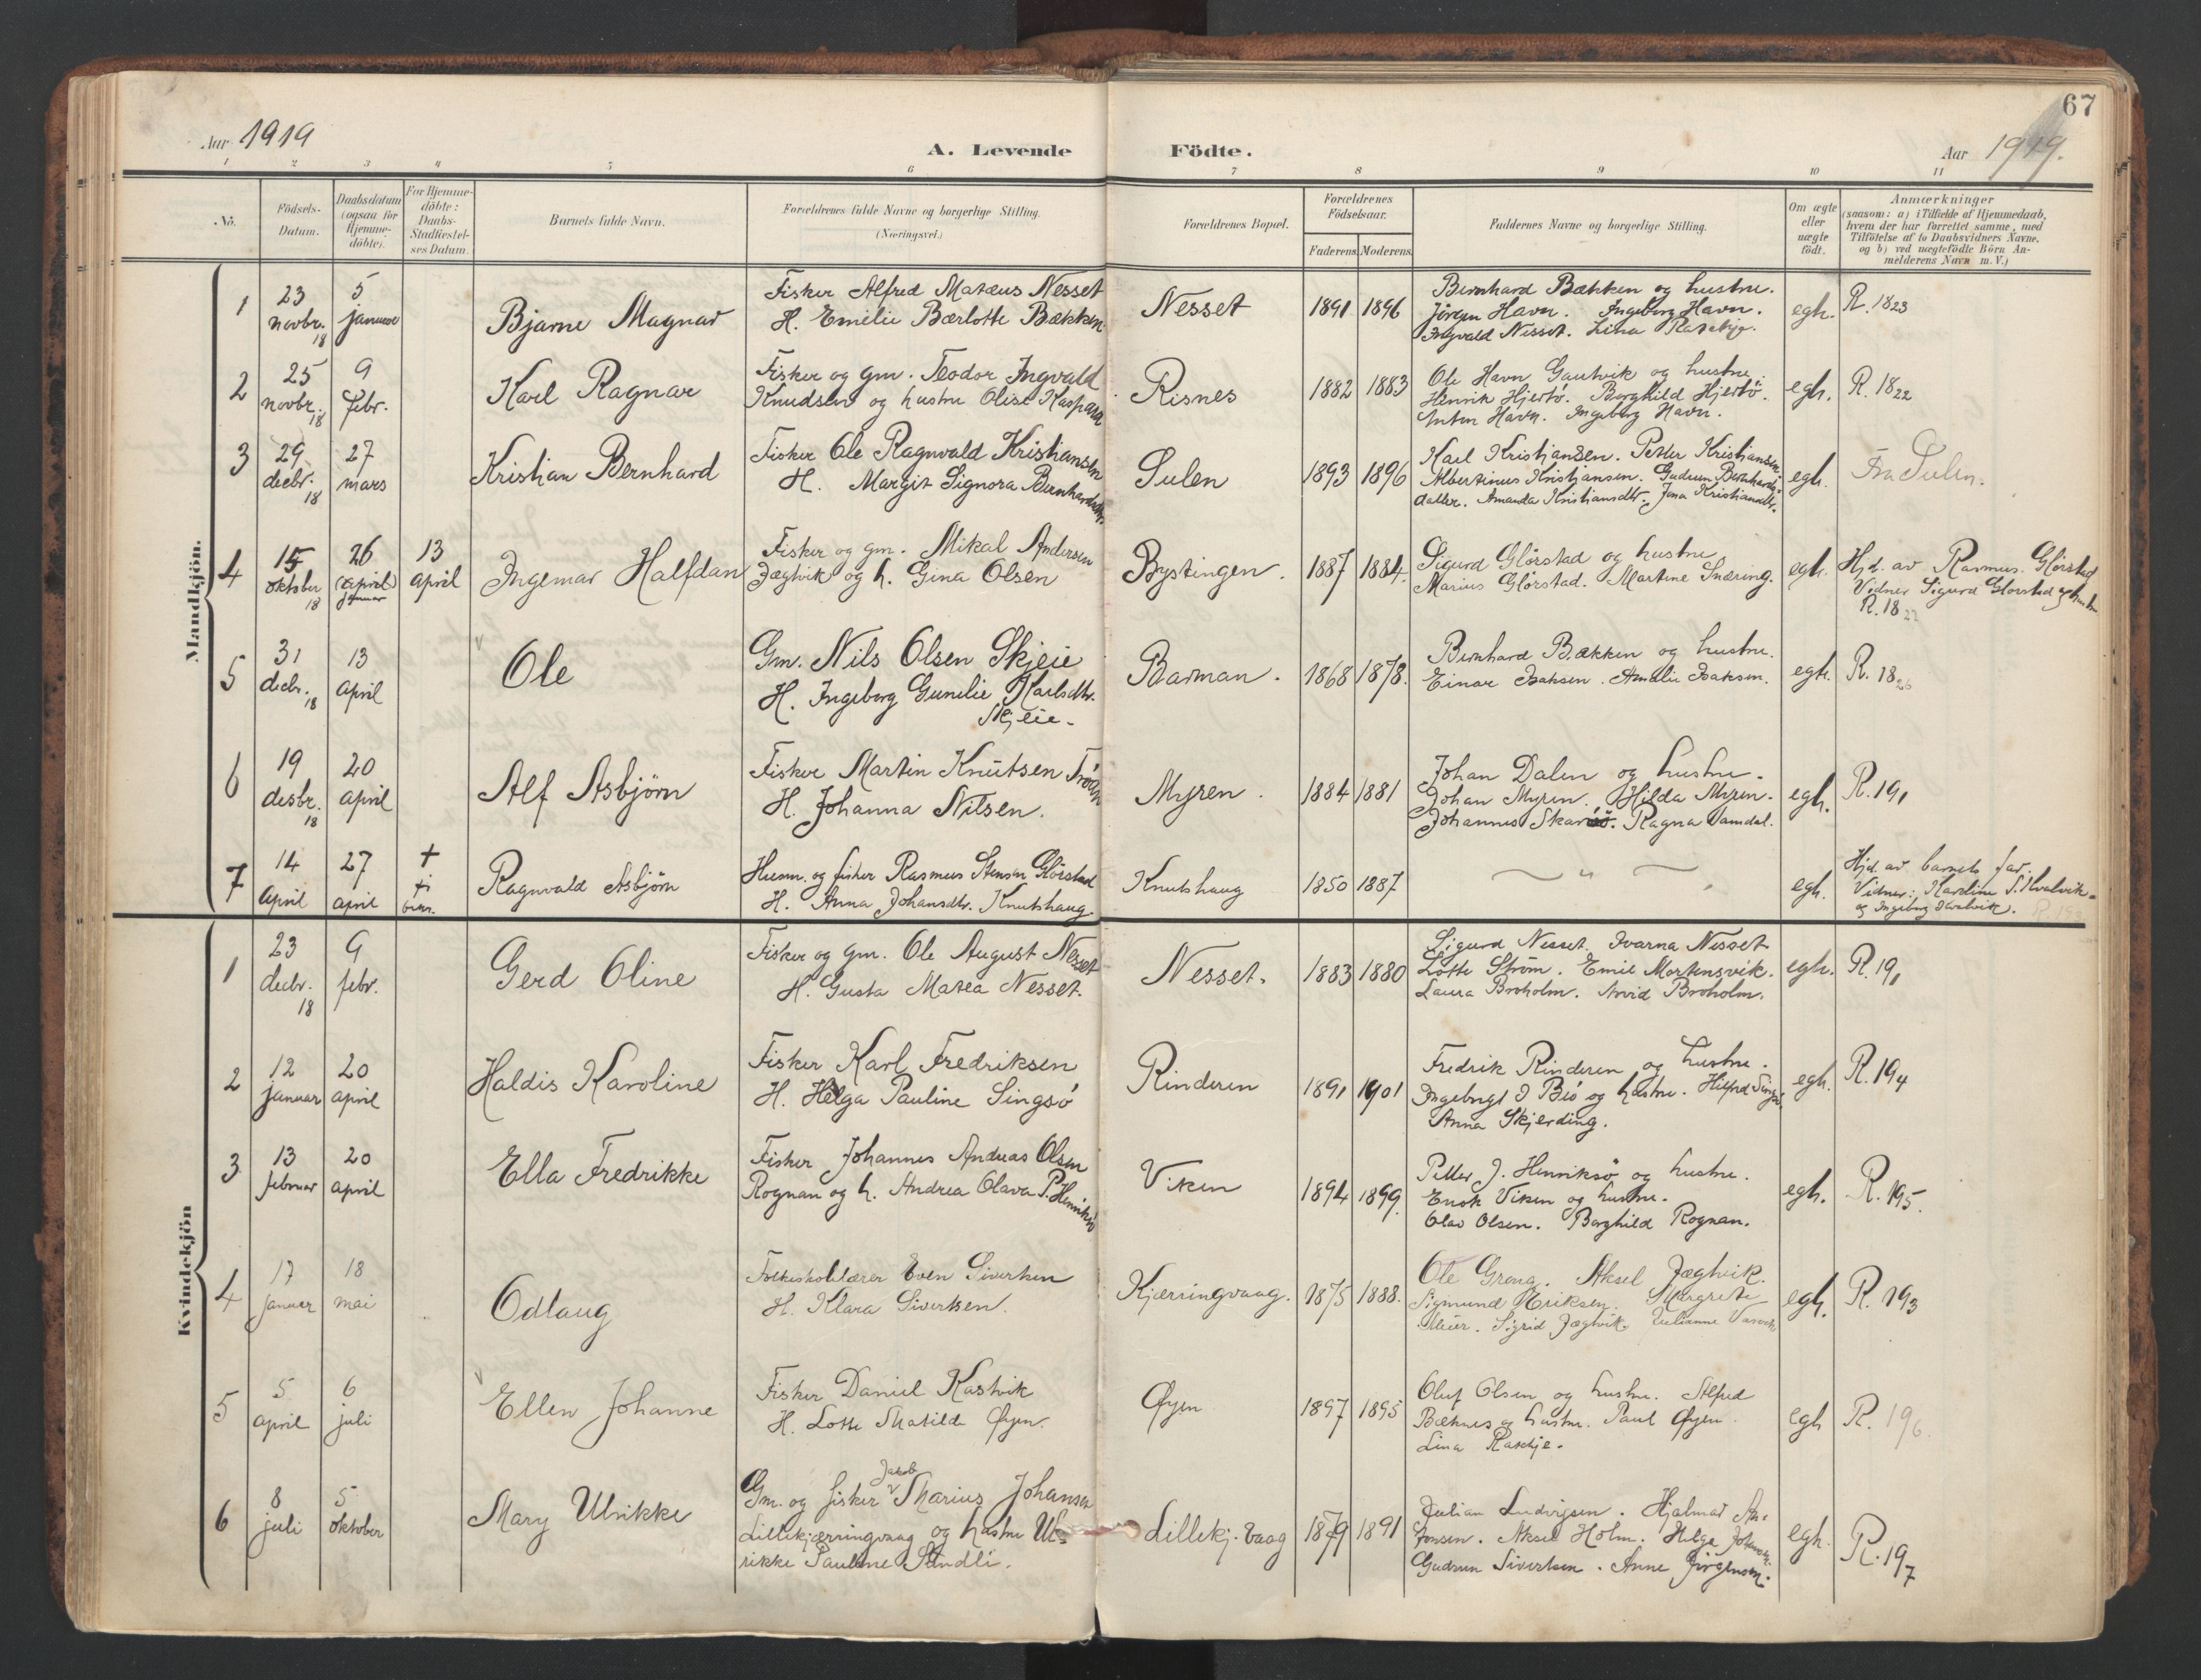 67
Aar 1919
A. Levende Födte.
Aar 1919.
1 2 3 4 5 6 7 8 9 10 11
No.
Födsels-
Datum.
Daabsdatum
(ogsaa for
Hjemme-
döbte).
For Hjemme-
döbte:
Daabs-
Stadfæstel-
ses Datum.
Barnets fulde Navn.
Forældrenes fulde Navne og borgerlige Stilling.
(Næringsvei.)
Forældrenes Bopæl.
Forældrenes
Födselsaar.
Faderens. Moderens.
Faddernes Navne og borgerlige Stilling.
Om ægte
eller
uægte
födt.
Anmærkninger
(saasom: a) i Tilfælde af Hjemmedaab,
hvem der har forrettet samme, med
Tilföielse af to Daabsvidners Navne,
og b) ved uægtefödte Börn An-
melderens Navn m. V.)
Mandkjön.
1
23
novbr.
18
5
januar
Bjarne Magnar
Fisker Alfred Mateus Nesset
H. Emelie Bærlotte Bækken
Nesset
1891 1896
Bernhard Bækken og hustru.
Jörgen Havn. Ingeborg Havn.
Ingvald Nesset. Lina
egh.
R. 1823
2
25
novbr.
18
9
febr.
Karl Ragnar
Fisker og gm. Teodor Ingvald
Knudsen og hustru Olise Kaspara
Risnes
1882 1883
Ole Havn Gautvik og hustru.
Henrik Hjertö. Borghild Hjertö.
Anton Havn. Ingeborg Havn.
egh.
R. 1822
3
29
decbr.
18
27
mars
Kristian Bernhard
Fisker Ole Ragnvald Kristiansen
H. Margit Signora Bernhardsdtr.
Sulen
1893 1896
Karl Kristiansen. Petter Kristiansen.
Albertinus Kristiansen. Gudrun Bernhards-
datter. Amanda Kristiansdtr. Jena Kristiansdtr.
egh.
Fra Sulen.
4
15
oktober
18
26
(april)
januar
13
april
Ingemar Halfdan
Fisker og gm. Mikal Andersen
Jægtvik og h. Gina Olsen
Bystingen.
1887 1884.
Sigurd Glörstad og hustru
Marius Glörstad. Martine Snæring.
egh.
Hjd. av Rasmus Glörstad
Vidner Sigurd Glörstad og hustru
R. 1822
5
31
decbr.
18
13
april
Ole
Gm. Nils Olsen Skjeie
H. Ingeborg Gunelie Karlsdtr.
Skjeie.
Barman.
1868 1878.
Bernhard Bækken og hustru.
Einar Isaksen. Amalie Isaksen.
egh.
R. 1826
6
19
desbr.
18
20
april
Alf Asbjörn
Fisker Martin Knutsen Fröan
H. Johanna Nilsen.
Myren.
1884 1881
Johan Dalen og hustru.
Johan Myren. Hilda Myren.
Johannes Skarsö. Ragna Vamdal.
egh.
R. 191
7
14
april
27
april
+
Ragnvald Asbjörn
Husm. og fisker Rasmus Stensen Glörstad
H. Anna Johansdtr. Knutshaug.
Knutshaug
1850 1887
— " —
egh.
Hjd. av barnets far.
Vidner: Karoline S. Kvalvik
og Ingeborg Kvalvik.
Kvindekjön
1
23
decbr.
18
9
febr.
Gerd Oline
Fisker og gm. Ole August Nesset
H. Gusta Matea Nesset.
Nesset.
1883 1880
Sigurd Nesset. Ivarna Nesset
Lotte Ström. Emil Mortensvik.
Laura Broholm. Arvid Broholm.
egh.
R. 191
2
12
januar
20
april
Haldis Karoline
Fisker Karl Fredriksen
H. Helga Pauline Singsö
Rinderen
1891 1901
Fredrik Rinderen og hustru.
Ingebrigt J Bö og hustru. Hilfred Singsö.
Anna Skjerding.
egh.
R. 194
3
13
februar
20
april
Ella Fredrikke
Fisker Johannes Andreas Olsen
Rognan og h. Andrea Olava P. Henriksö
Viken
1894 1899.
Petter J. Henriksö og hustru.
Enok Viken og hustru.
Olav Olsen. Borghild Rognan.
egh.
R. 195.
4
17
januar
18
mai
Odlaug
Folkeskolelærer Even Sivertsen
H. Klara Sivertsen.
Kjerringvaag.
1875 1888.
Ole Grong. Aksel Jægtvik.
Sigmund Eriksen. Margrete
Meier. Sigrid Jægtvik. Julianne
egh.
R. 193
5
5
april
6
juli
Ellen Johanne
Fisker Daniel Kastvik
H. Lotte Matilde Øyen.
Øyen
1897 1895
Oluf Olsen og hustru. Alfred
Bæknes og hustru. Paul Øyen.
Lina
egh
R. 196.
6
8
juli
5
oktober
Mary Ulrikke
Jakob
Gm. og fisker Marius Johansen
Lillekjerringvaag og hustru Ul-
rikke Pauline Sandli.
Lillekj. vaag
1879 1891
Julian Ludvigsen. Hjalmar An-
tonsen. Aksel Holm. Helga Johansen.
Gudrun Sivertsen. Anne Jörgensen.
egh.
R. 197